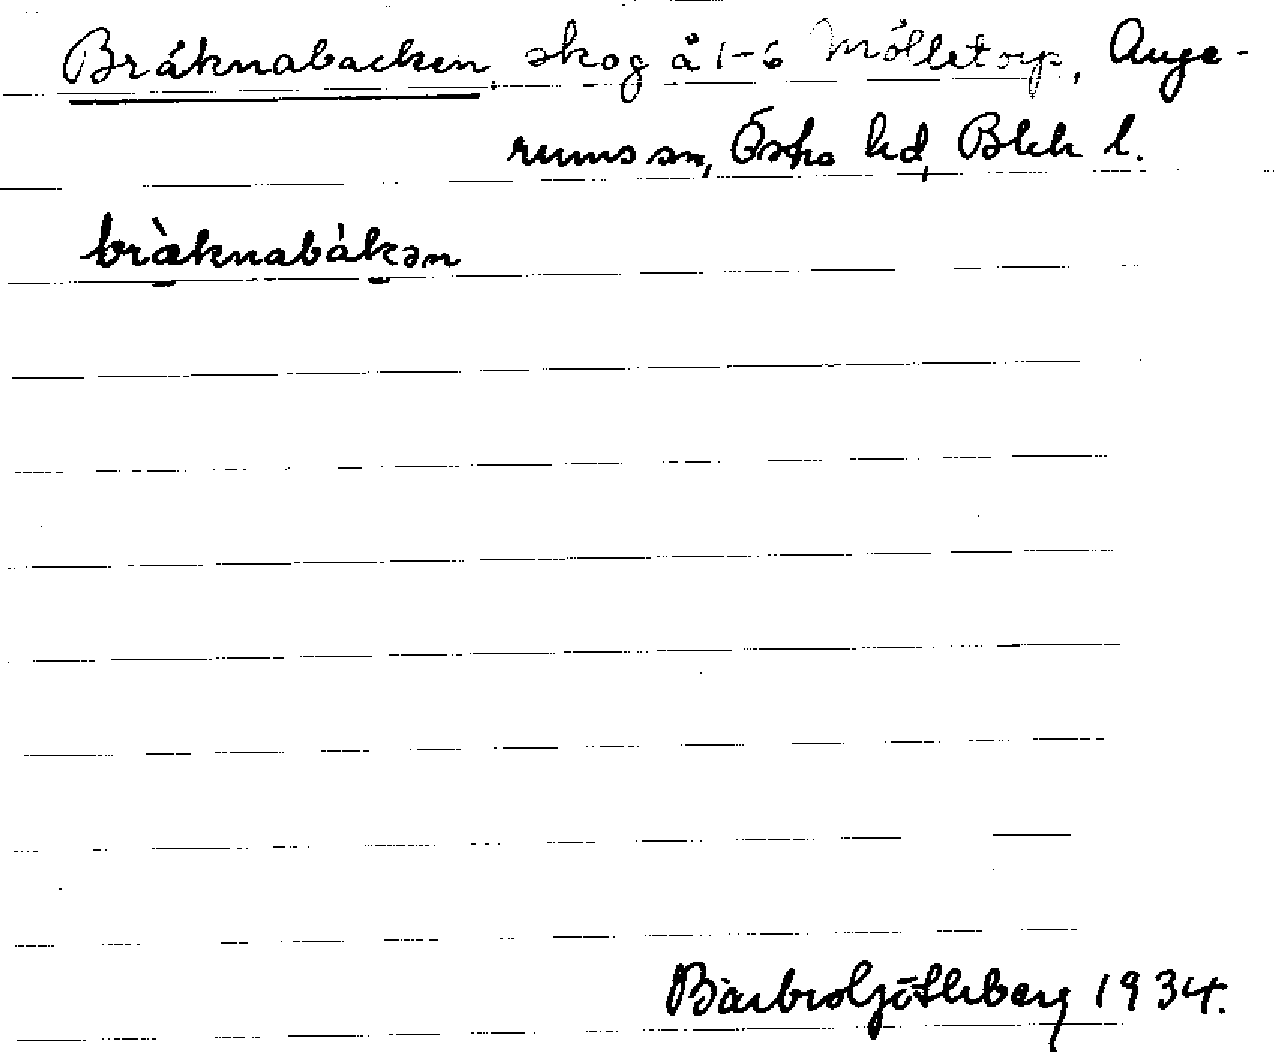 Bräknabacken, skog å 1-6 Mölletorp, Auge-
rums sn, Östra hd, Blek l.
bràknabákən
Barbro Götlberg 1934.